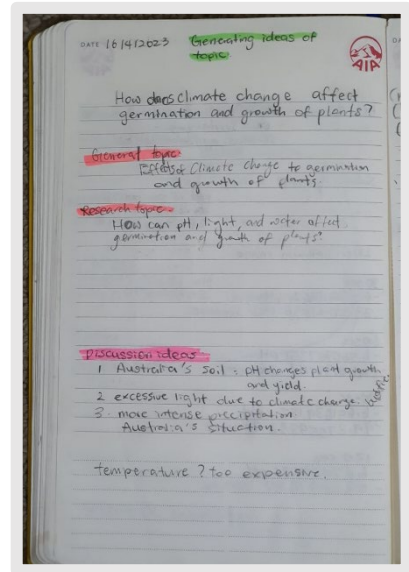 DATE 16/4/2023 Generating ideas of
topic
AIA
How does climate change affect
germination and growth of plants?
General topic
Effects of Climate change to germination
and growth of plants
Research topic
How can pH, light, and water affect
germination and growth of plants?
Discussion ideas
1 Australia's soil : pH changes plant growth
and yield.
2 excessive light due to climate change.
3 more intense precipitation
Australia's situation.
temperature ? too expensive.